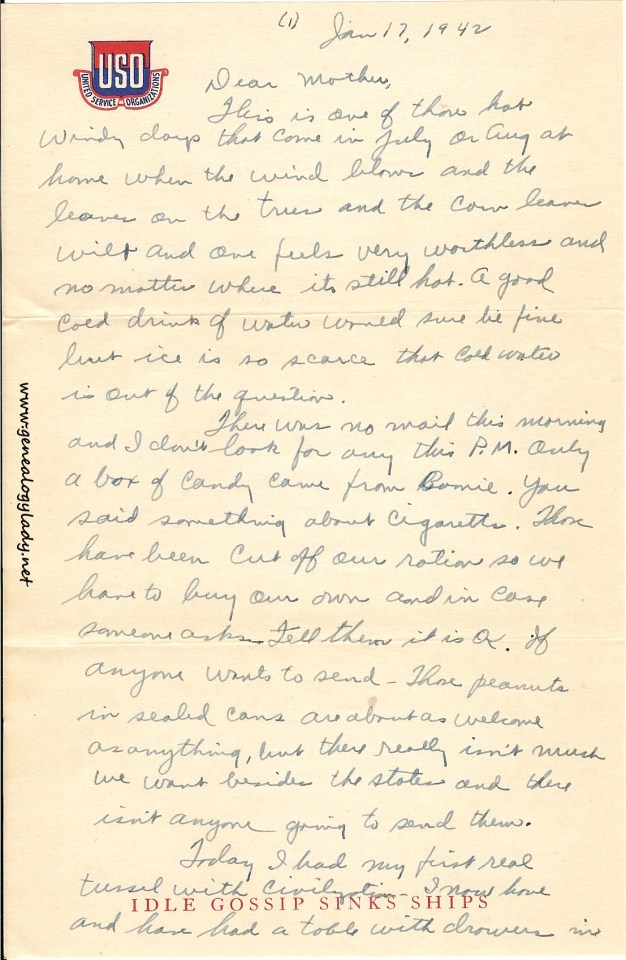 (1)
Jan 17, 1942
USO
UNITED SERVICE ORGANIZATIONS
Dear Mother,
This is one of those hot
windy days that come in July or Aug at
home when the wind blows and the
leaves on the trees and the corn leaves
wilt and one feels very worthless and
no matter where its still hot. A good
cold drink of water would sure be fine
but ice is so scarce that cold water
is out of the question.
There was no mail this morning
and I don't look for any this P.M. Only
a box of candy came from Bomie. You
said something about cigaretts. Those
have been cut off our ration so we
have to buy our own and in case
someone asks. Tell them it is OK. If
anyone wants to send - Those peanuts
in sealed cans are about as welcome
as anything, but there really isn't much
we want besides the states and there
isn't anyone going to send them.
Today I had my first real
tussel with civilization - I now have
IDLE GOSSIP SINKS SHIPS
and have had a table with drawers in
www.genealogylady.net